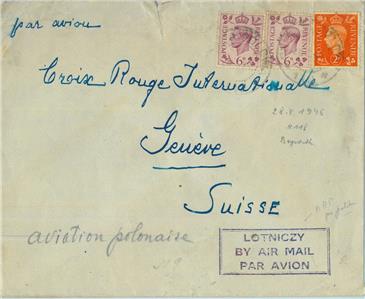 par avion
POSTAGE REVENUE
6D
POSTAGE REVENUE
6D
POSTAGE REVENUE
2D
Croix Rouge Internationalle
28.V.1946
Genève
Suisse
aviation polonaise
LOTNICZY
BY AIR MAIL
PAR AVION